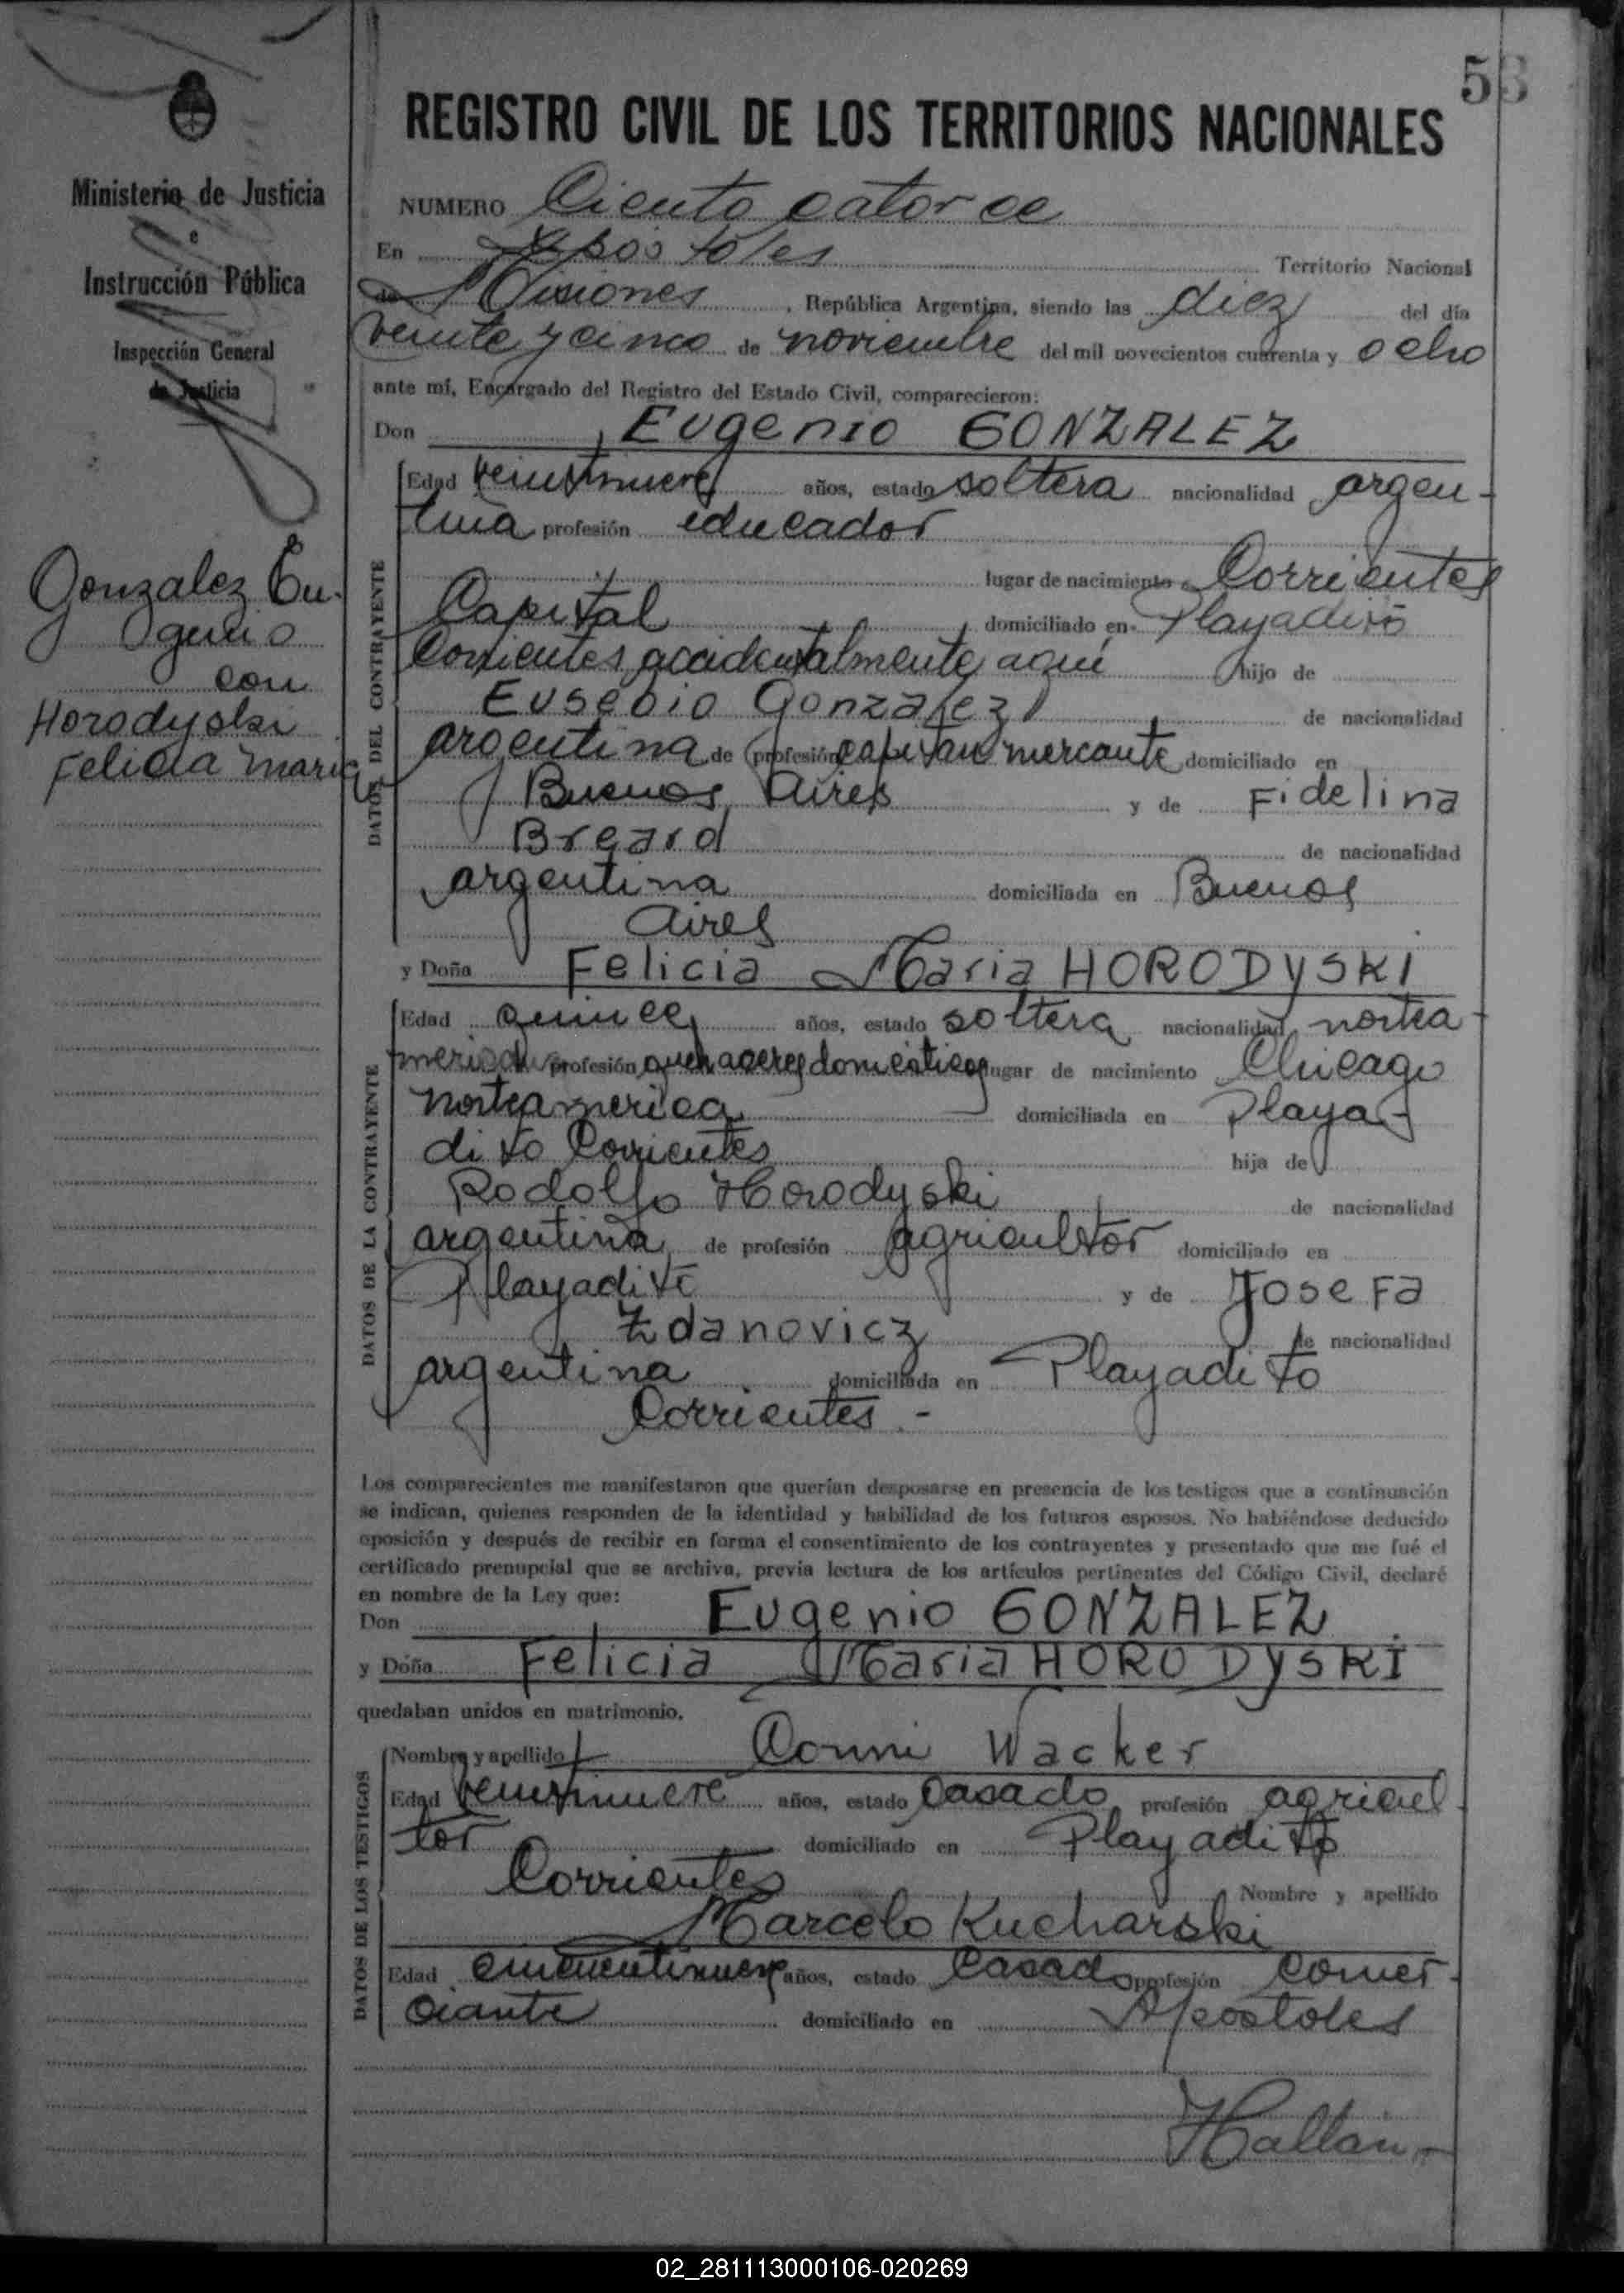 53
Ministerio de Justicia
e
Instrucción Pública
Inspección General
de Justicia
Gonzalez Eu-
genio
con
Horodyski
Felicia Maria
REGISTRO CIVIL DE LOS TERRITORIOS NACIONALES
NUMERO Ciento catorce
En Apostoles Territorio Nacional
de Misiones, República Argentina, siendo las diez del día
veinte y cinco de noviembre del mil novecientos cuarenta y ocho
ante mí, Encargado del Registro del Estado Civil, comparecieron:
Don Eugenio GONZALEZ
DATOS DEL CONTRAYENTE
Edad veintinueve años, estado soltera nacionalidad argen-
tina profesión educador
lugar de nacimiento Corrientes
Capital domiciliado en Playadito
Corrientes accidentalmente aquí hijo de
Eusebio Gonzalez de nacionalidad
argentina de profesión capitan mercante domiciliado en
Buenos Aires y de Fidelina
Breard de nacionalidad
argentina domiciliada en Buenos
Aires
y Doña Felicia Maria HORODYSKI
DATOS DE LA CONTRAYENTE
Edad quince años, estado soltera nacionalidad nortea-
merican profesión quehaceres domésticos lugar de nacimiento Chicago
norteamerica domiciliada en Playa-
dito Corrientes hija de
Rodolfo Horodyski de nacionalidad
argentina de profesión agricultor domiciliado en
Playadito y de Josefa
Zdanovicz de nacionalidad
argentina domiciliada en Playadito
Corrientes -
Los comparecientes me manifestaron que querían desposarse en presencia de los testigos que a continuación
se indican, quienes responden de la identidad y habilidad de los futuros esposos. No habiéndose deducido
oposición y después de recibir en forma el consentimiento de los contrayentes y presentado que me fué el
certificado prenupcial que se archiva, previa lectura de los artículos pertinentes del Código Civil, declaré
en nombre de la Ley que:
Don Eugenio GONZALEZ
y Doña Felicia Maria HORODYSKI
quedaban unidos en matrimonio.
DATOS DE LOS TESTIGOS
Nombre y apellido Conni Wacker
Edad veintinueve años, estado casado profesión agricul
tor domiciliado en Playadito
Corrientes Nombre y apellido
Marcelo Kucharski
Edad cincuentinueve años, estado casado profesión comer-
ciante domiciliado en Apostoles
02_281113000106-020269